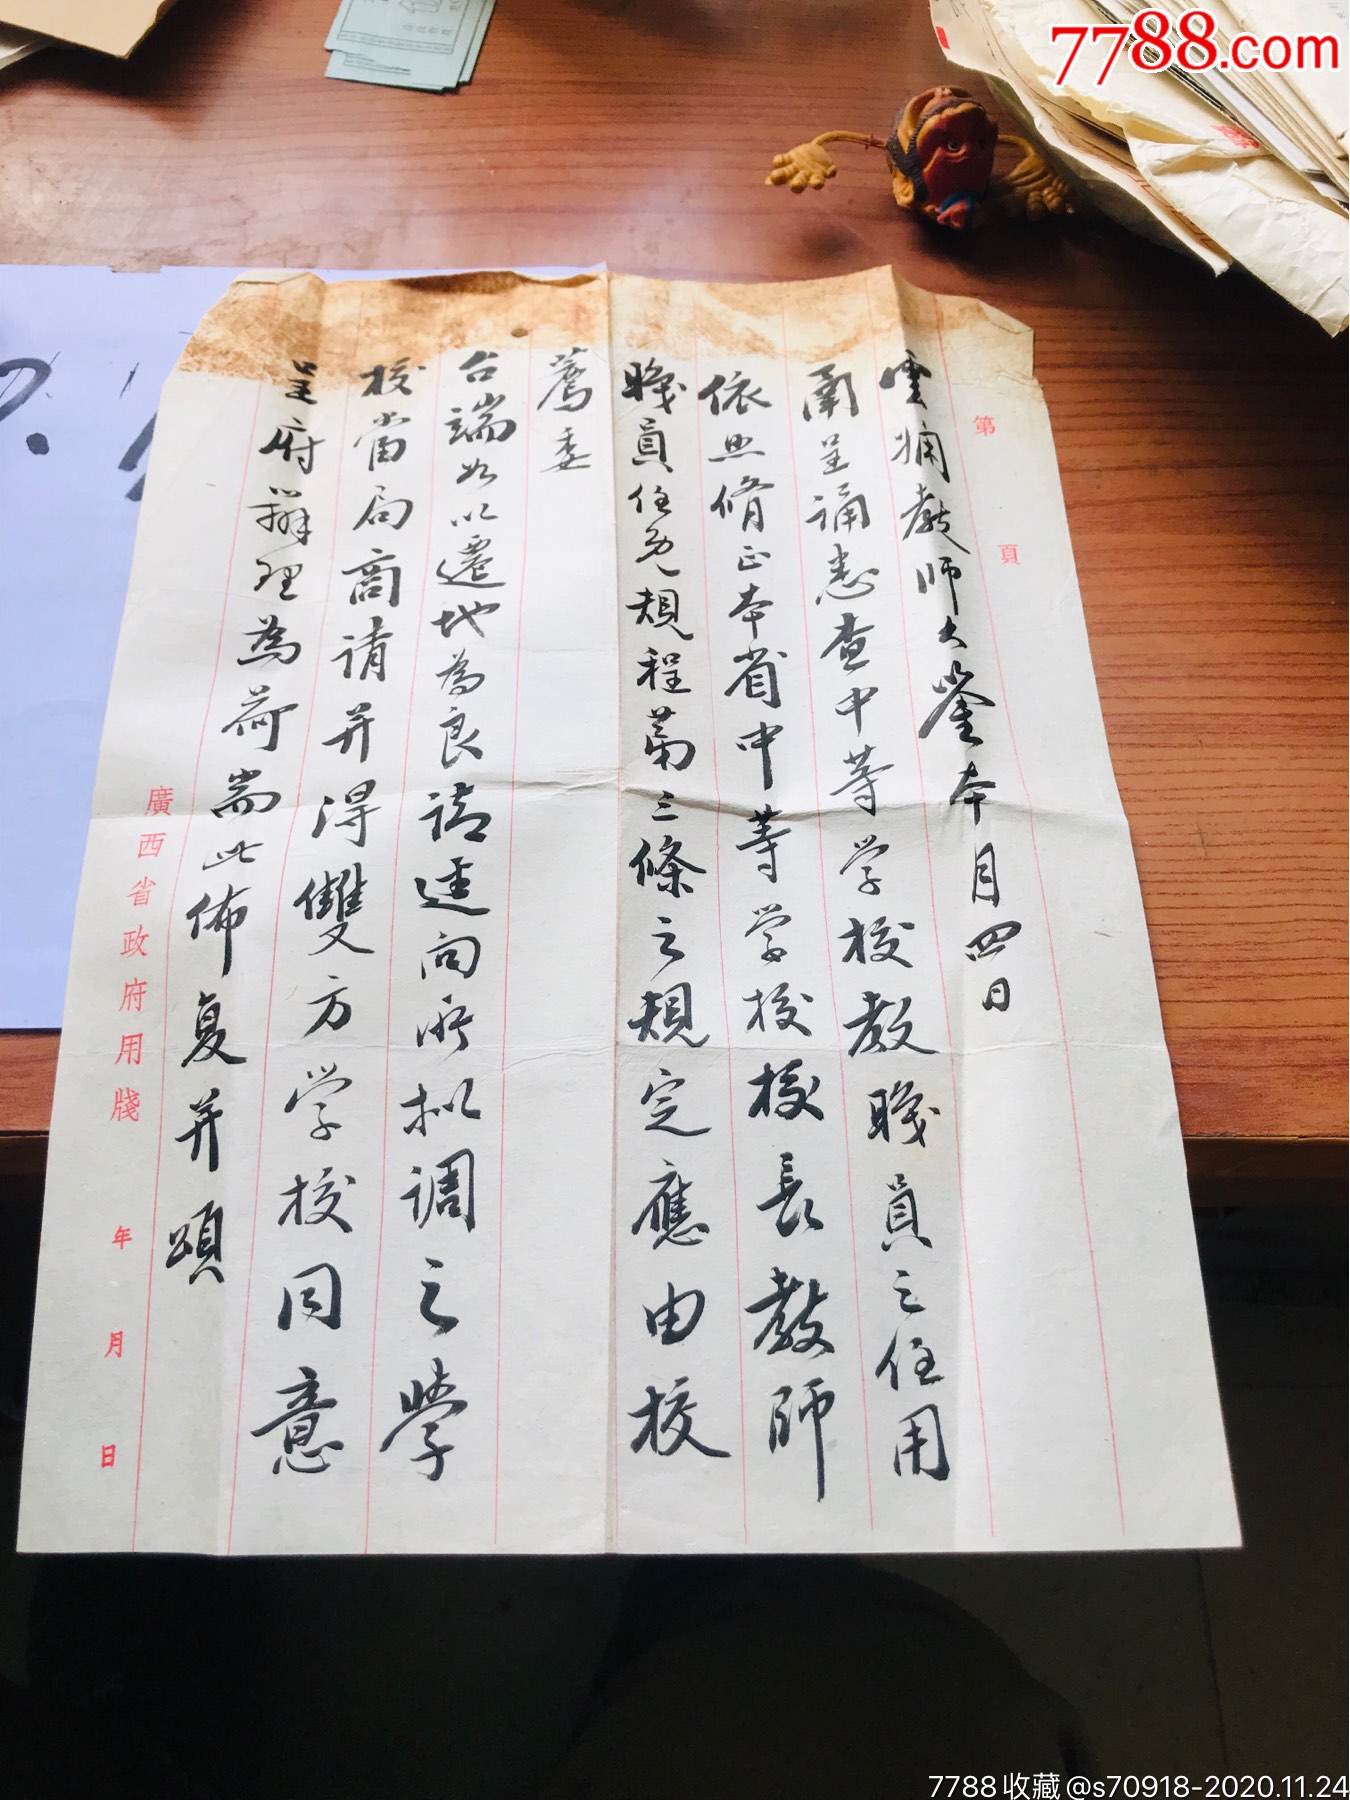 7788.com
第 頁
雲 教師大鑒本月四日
呈誦悉查中等学校教職員之任用
依照修正本省中等学校校長教師
職員任免規程第三條之規定應由校
薦委
台端如以遷地為良請逕向所拟調之學
校當局商请并得雙方学校同意
呈府辦理為荷耑此佈复并頌
廣西省政府用牋 年 月 日
7788收藏@s70918-2020.11.24